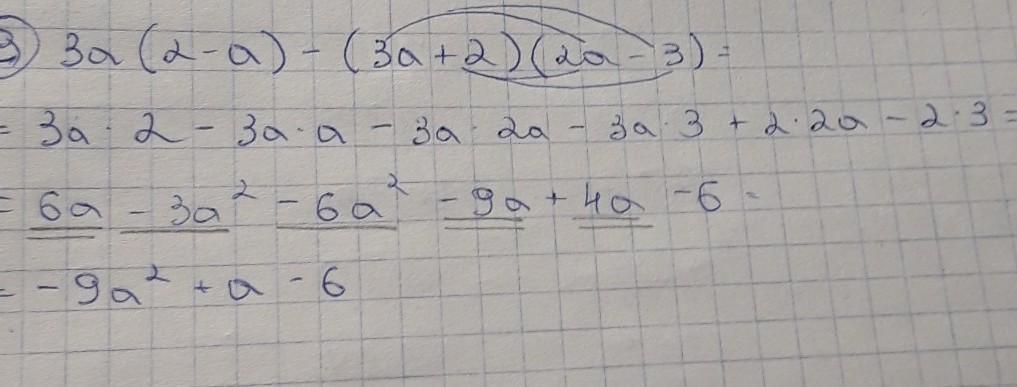 3) 3a(2-a) - (3a+2)(2a-3) =
= 3a · 2 - 3a · a - 3a · 2a - 3a · 3 + 2 · 2a - 2 · 3 =
= 6a - 3a² - 6a² - 9a + 4a - 6 =
= -9a² + a - 6